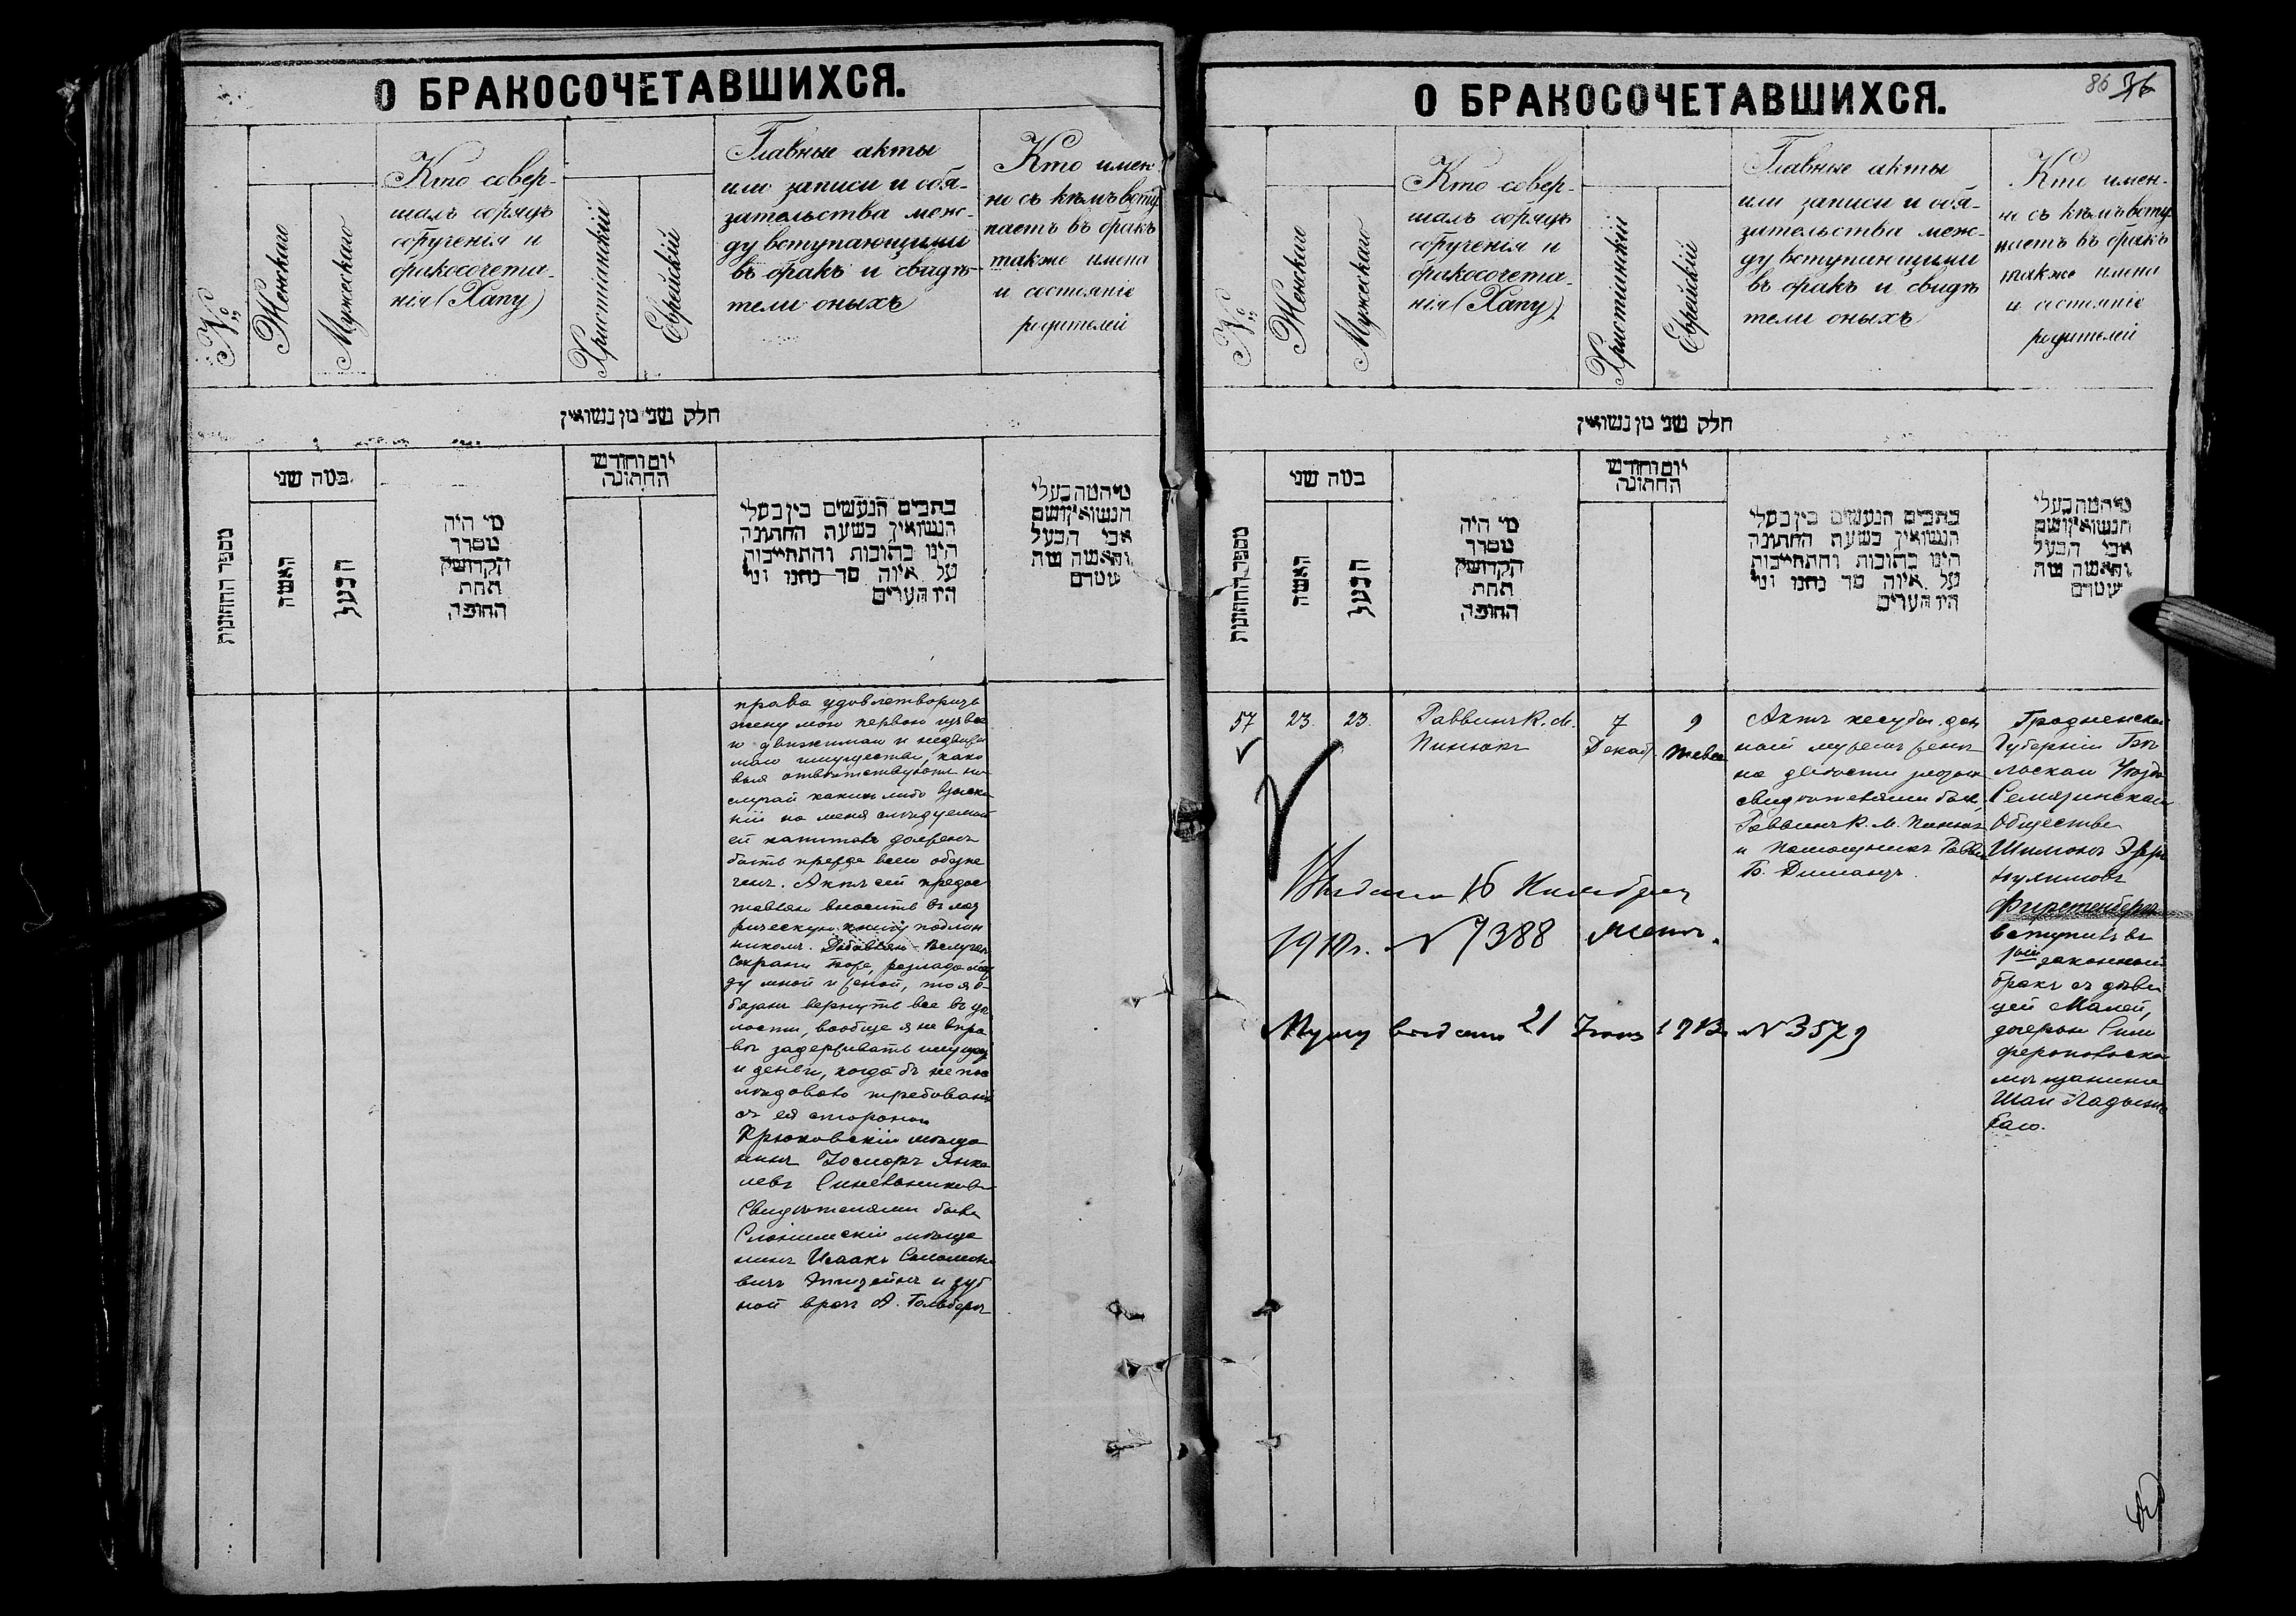 О БРАКОСОЧЕТАВШИХСЯ.
№
Женскаго
Мужескаго
Кто совер-
шалъ обрядъ
обрученія и
бракосочета-
нія (Хапу)
Христіанскій
Еврейскій
Главные акты
или записи и обя-
зательства меж-
ду вступающими
въ бракъ и свидѣ-
тели оныхъ
Кто имен
но съ кѣмъ всту
паетъ въ бракъ
также имена
и состояніе
родителей
חלק שני מן נשואין
מספר החתונות
כמה שני
האשה
הבעל
מי היה
מסדר
הקדושין
תחת
החופה
יום וחודש
החתונה
כתבים הנעשים בין בעלי
הנשואין בשעת החתונה
היינו כתובות והתחייבות
על איזה סך נתנו ומי
היו הערים
מי המה בעלי
הנשואין ושם
אבי הבעל
והאשה שמה
שטרם
права удовлетворить
жену мою первою изъ все
го движимаго и недвижи
маго имущества, како
выя отвѣтствуютъ на
случай какихъ либо взыска
ній на меня слѣдуемый
ей капиталъ долженъ
быть прежде всего обезпе
ченъ. Актъ сей предос
тавляю вносить въ
рическую книгу подлин
никомъ. Добавляю
Сохрани Боже, разлада меж
ду мной и женой, то я о-
бязанъ вернуть все въ цѣ
лости, вообще я не впра
вѣ задерживать имущ
и деньги, когда бъ не пос
лѣдовало требованій
съ ея стороны
Крюковскій мѣща
нинъ Іосифъ Янке
левъ
Свидѣтелями были
Слонимскій мѣща
нинъ Исаакъ Соломоно
вичъ Эпштейнъ и зуб
ной врачъ А. Гольдбергъ
О БРАКОСОЧЕТАВШИХСЯ.
86
№
Женскаго
Мужескаго
Кто совер-
шалъ обрядъ
обрученія и
бракосочета-
нія (Хапу)
Христіанскій
Еврейскій
Главные акты
или записи и обя-
зательства меж-
ду вступающими
въ бракъ и свидѣ
тели оныхъ
Кто имен-
но съ кѣмъ всту
паетъ въ бракъ
также имена
и состояніе
родителей
חלק שני מן נשואין
מספר החתונות
כמה שני
האשה
הבעל
מי היה
מסדר
הקדושין
תחת
החופה
יום וחודש
החתונה
כתבים הנעשים בין בעלי
הנשואין בשעת החתונה
היינו כתובות והתחייבות
על איזה סך נתנו ומי
היו הערים
מי המה בעלי
הנשואין ושם
אבי הבעל
והאשה שמה
שטרם
57 23. 23. Раввинъ К. М. Пинюхъ 7 Декаб 9 Тевес
Актъ кесубы дан
ный мужемъ женѣ
на
свидѣтелями были
Раввинъ К. М. Пинюхъ
и помощникъ Равви
Б. Димандъ.
Гродненской
Губерніи Бѣ
лоскаго Уѣзда
Семятинскаго
Общества
Шимонъ
Фирстенбергъ
вступилъ въ
1ый законный
бракъ съ дѣви
цей Малей,
дочерью Сим
феропольска
мѣщанина
Шаи Ладыжин
скаго.
Выдана 16 Ноября
1910г. N 7388
Мужу выдана 21 1913 N 3579